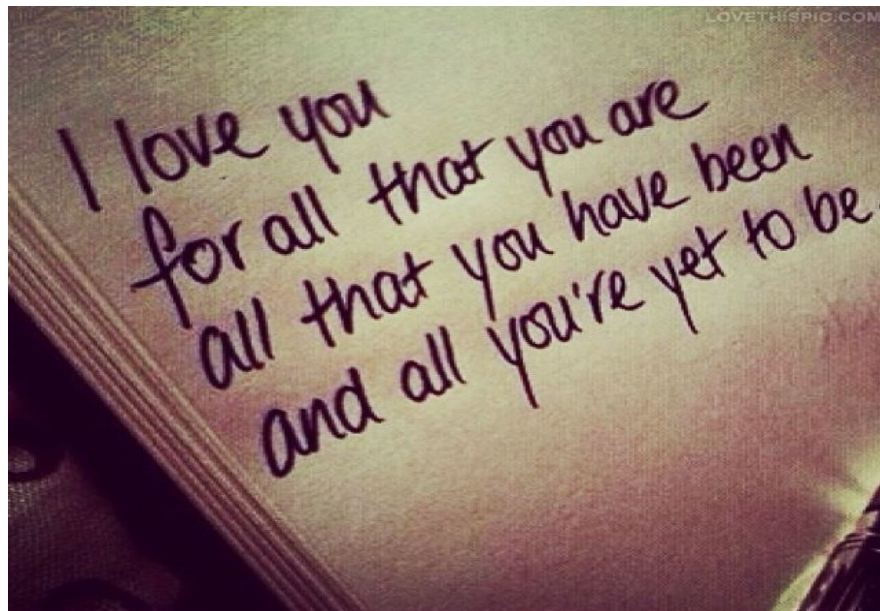 LOVETHISPIC.COM
I love you
for all that you are
all that you have been
and all you're yet to be.